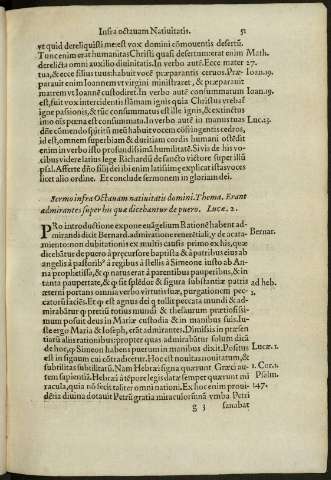 Infra octauam Natiuitatis. 51
vt quid dereliquisti me: est vox domini cõmouentis desertũ.
Tunc enim erat humanitas Christi quasi deserta: nam erat enim Math.
derelicta omni auxilio diuinitatis. In verbo autẽ. Ecce mater 27.
tua, & ecce filius tuus: habuit vocẽ præparantis ceruos. Præ- Ioan.19.
parauit enim Ioannem vt virgini ministraret, & præparauit
matrem vt Ioannẽ custodiret. In verbo autẽ consummatum Ioan.19.
est, fuit vox intercidentis flãmam ignis quia Christus vrebat
igne passionis, & tũc consummatus est ille ignis, & extinctus
imo oĩs pœna est consummata. In verbo autẽ in manus tuas Luc.23.
dñe cõmendo spiritũ meũ habuit vocem cõfringentis cedros,
id est, omnem superbiam & duritiam cordis humani ostẽdit
enim in verbo isto profundissimã humilitatẽ. Si vis de his vo-
cibus videre latius lege Richardũ de sancto victore super illũ
psal. Afferte dño filij dei ibi enim latissime explicat istas voces
licet alio ordine. Et conclude sermonem in gloriam dei.
Sermo infra Octauam natiuitatis domini. Thema. Erant
admirantes super his quæ dicebantur de puero. Lucæ. 2.
PRo introductione expone euãgelium Ratione habent ad-
mirandi dicit Bernard. admiratione reuerẽtiali, & de ocata-
miento: non dubitationis ex multis causis primo ex his, quæ Bernar.
dicebãtur de puero à præcursore baptista & à patribus eius ab
angelis à pastorib⁹ à regibus à stella à Simeone iusto ab An-
na prophetissa, & q̃ natus erat à parentibus pauperibus, & in
tanta paupertate, & q̃ sit splẽdor & figura substantiæ patris ad heb.
æterni portans omnia verbo virtutis suæ, purgationem pec- 2.
catorũ faciẽs. Et q̃ est agnus dei q̃ tollit peccata mundi & ad-
mirabãtur q̃ pretiũ totius mundi & thesaurum pretiosissi-
mum posuit deus in Mariæ custodia & in manibus suis. Iu-
ste ergo Maria & Ioseph, erãt admirantes. Dimissis in præsen
tiarũ alijs rationibus: propter quas admirabãtur solum dicã
de hoc, q̃ Simeon habens puerum in manibus dixit. Positus Lucæ.2.
est in signum cui cõtradicetur. Hoc est nouitas nouitatum, &
subtilitas subtilitatũ. Nam Hebræi signa quærunt Græci au- 1.Cor.1.
tem sapientiã. Hebræi à tẽpore legis datæ semper quærunt mi Psalm.
racula, quia nõ fecit taliter omni nationi. Ex hoc enim proui- 147.
dẽtia diuina dotauit Petrũ gratia miraculorũ: nã vmba Petri
g 3 sanabat